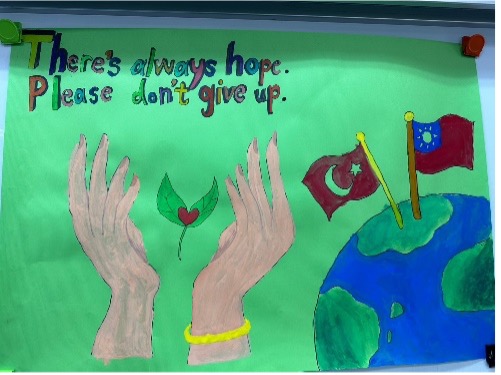 There's always hope.
Please don't give up.